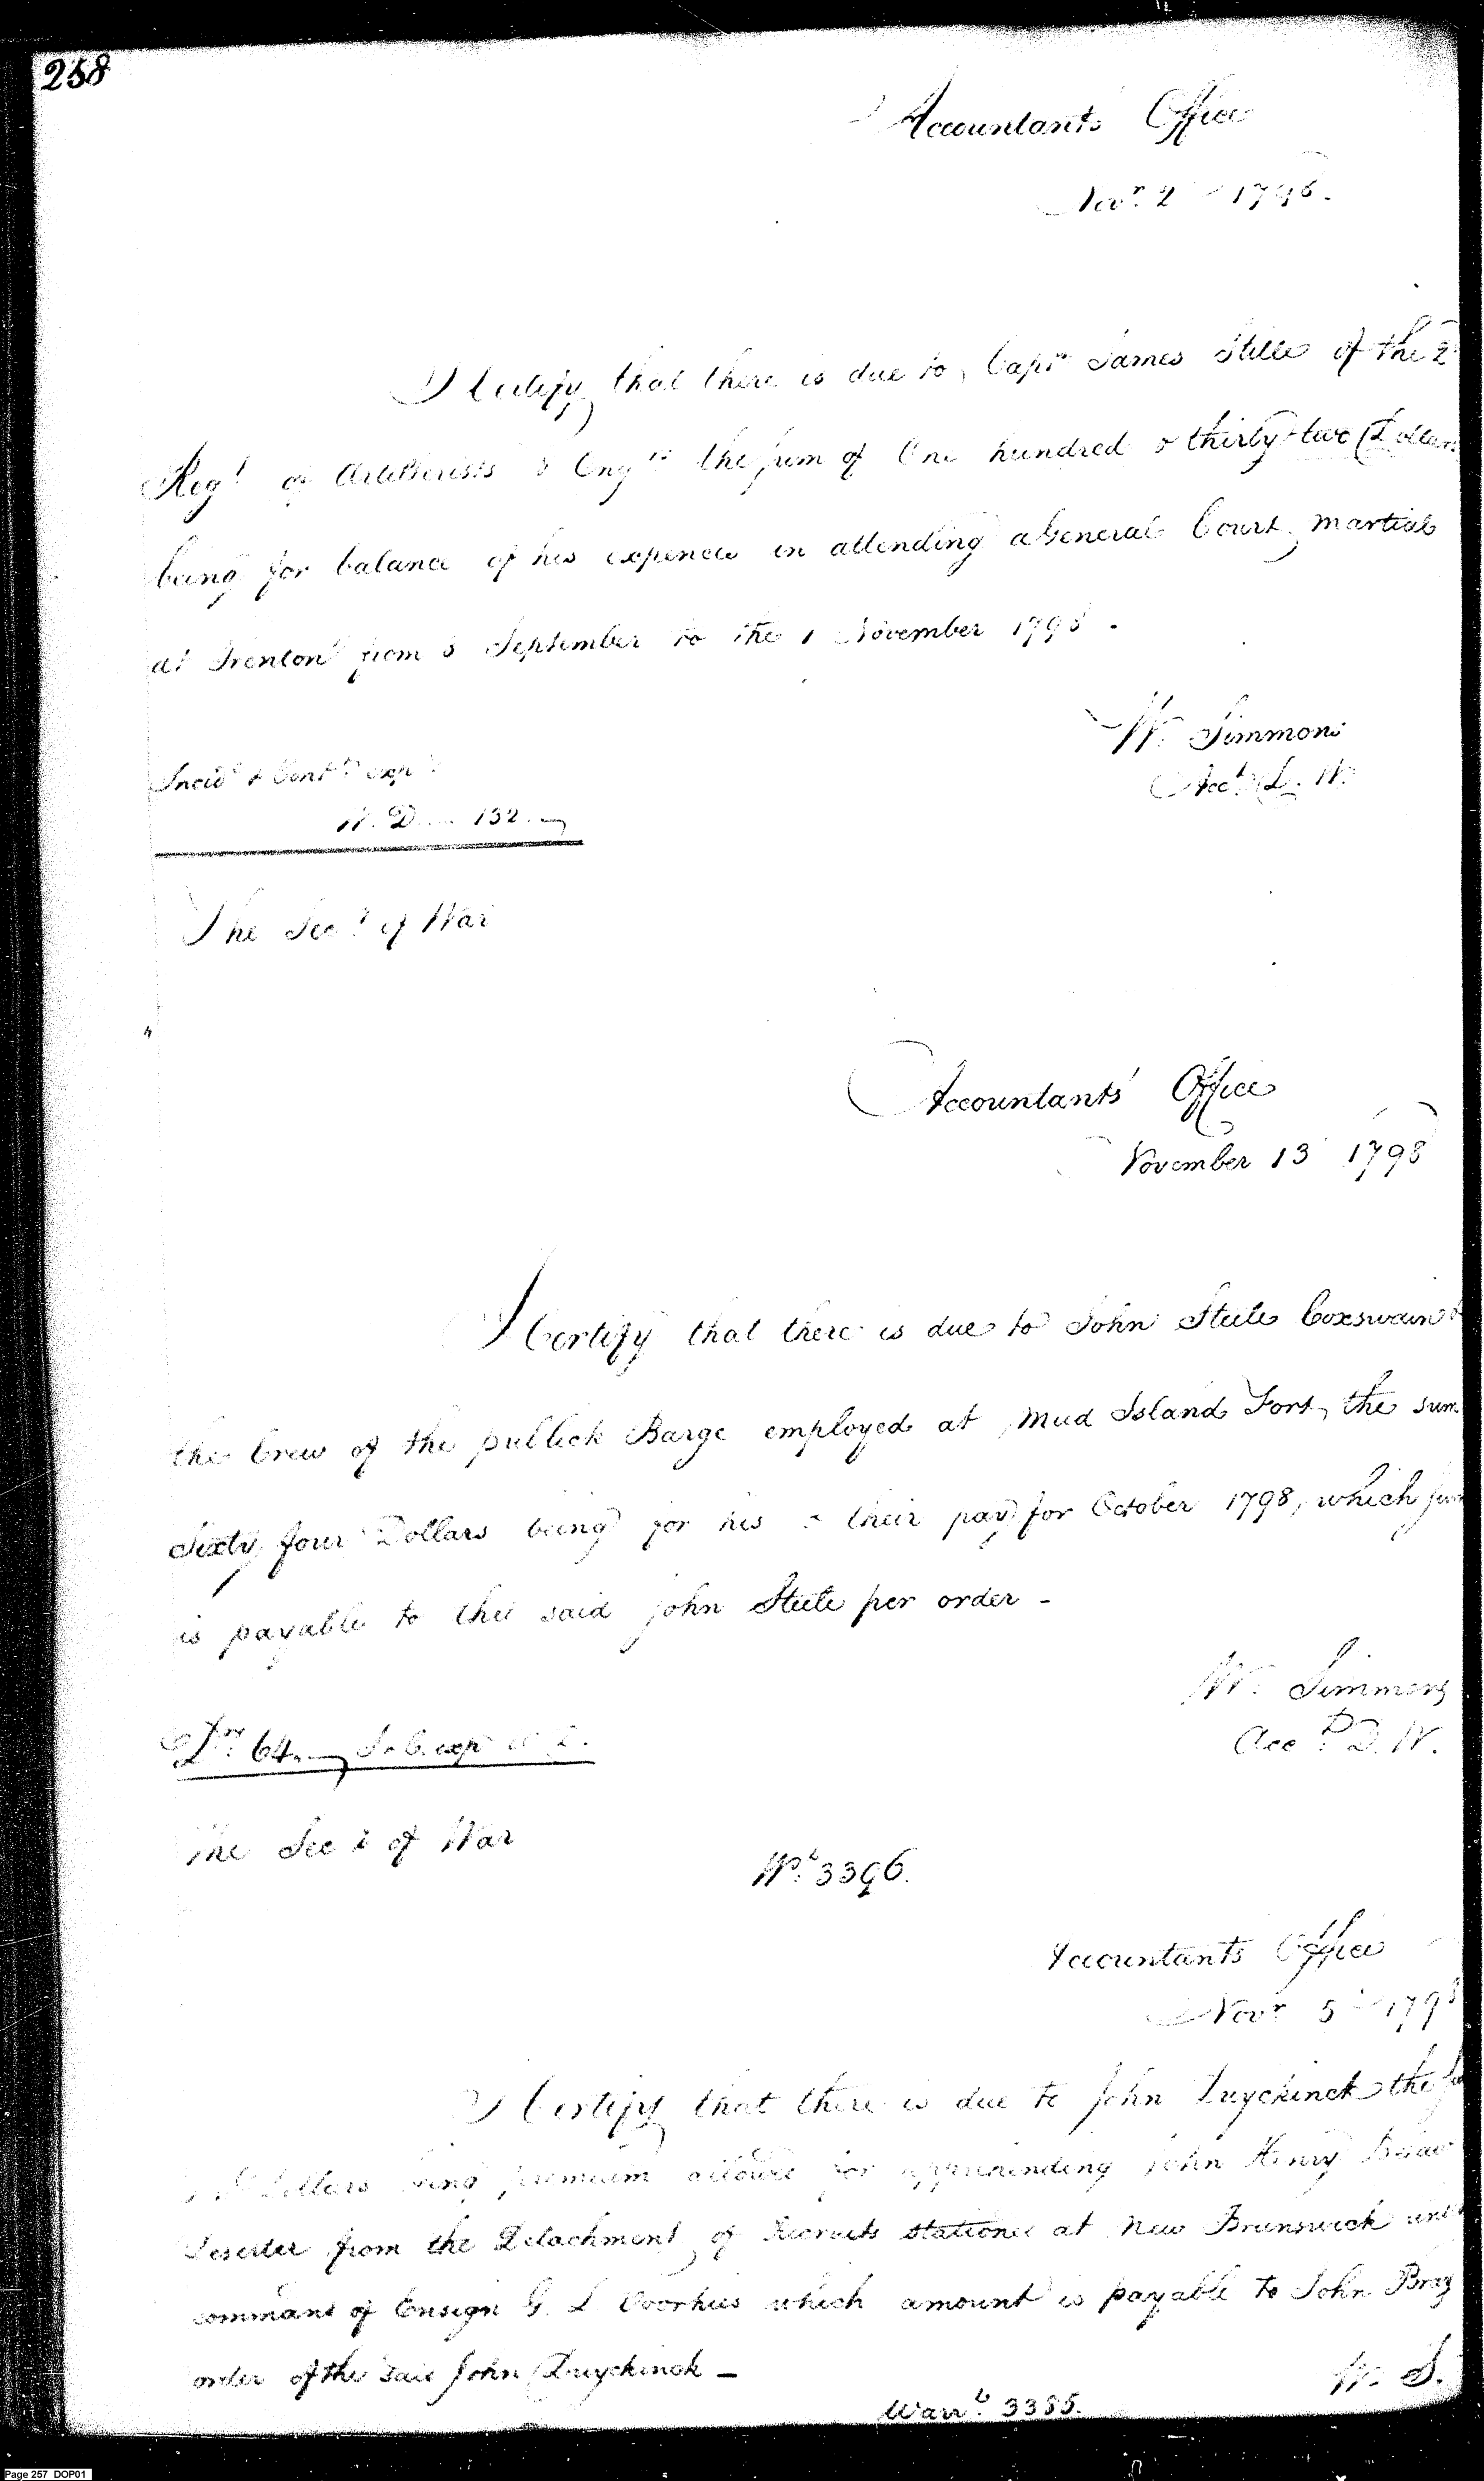 258
Accountants Office
Novr. 2 1798.
I Certify that there is due to Capt. James Stille of the 2
Regt of Artillerists & Engrs the sum of One hundred & thirty two Dollars
being for balance of his expences in attending a General Court martial
at Trenton from 5 September to the 1 November 1798.
W. Simmons
Acct. D. W.
Incidt & Contt exps
W. D. 132.
The Secy of War
Accountants' Office
November 13 1798
I Certify that there is due to John Steele Coxswain &
the Crew of the publick Barge employed at Mud Island Fort, the sum
Sixty four Dollars being for his & their pay for October 1798, which sum
is payable to the said John Steele per order -
W. Simmons
Acct. D. W.
Drs 64. I & C. exps W D.
The Secy of War
Wt. 3396.
Accountants Office
Novr 5 1798
I Certify that there is due to John Duyckinck the
Dollars being premium allowed for apprehending John Henry
Deserter from the Detachment of Recruits stationed at New Brunswick und
command of Ensign G. L Voorhies which amount is payable to John Bray
order of the said John Duyckinck -
W. S.
Warrt. 3385.
Page 257 DOP01